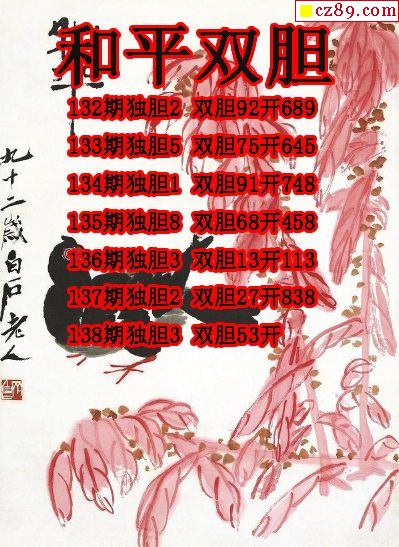 cz89.com
和平双胆
132期独胆2 双胆92开689
133期独胆5 双胆75开645
134期独胆1 双胆91开748
135期独胆8 双胆68开458
136期独胆3 双胆13开113
137期独胆2 双胆27开838
138期独胆3 双胆53开
九十二岁白石老人